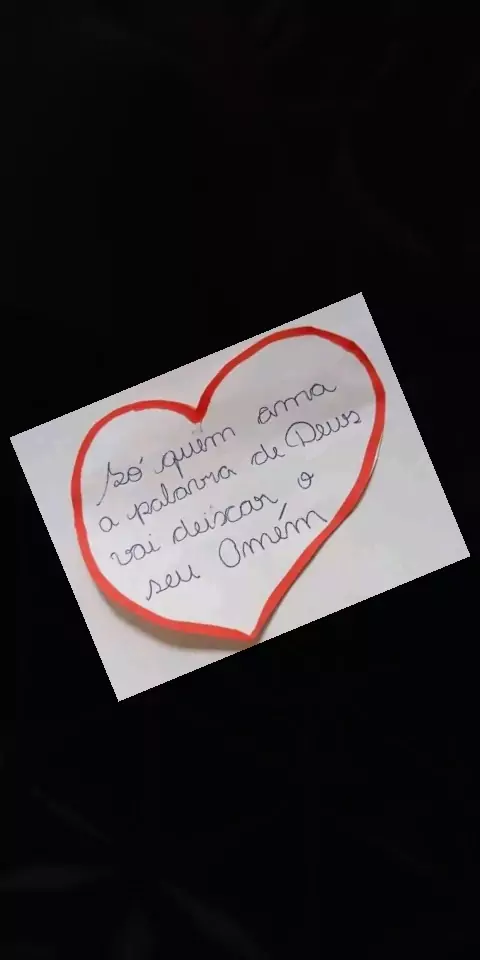 Só quém ama
a palavra de Deus
vai deixar o
seu Amém